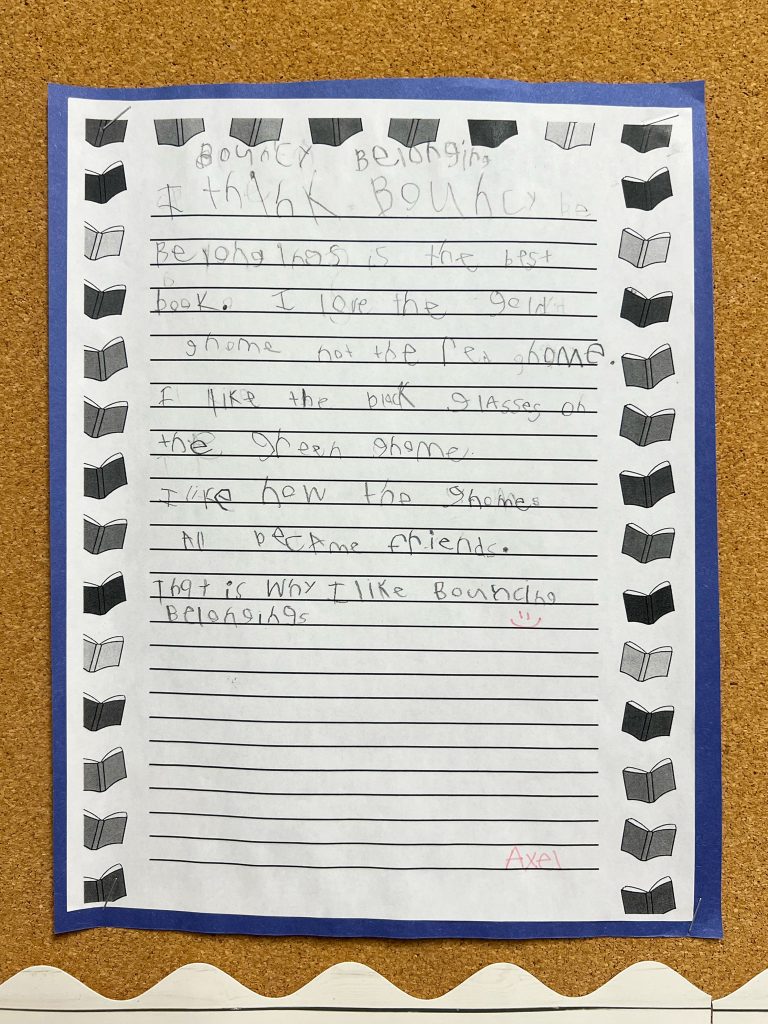 Bouncy Belonging
I think Bouncy be
Belongings is the best
book. I love the
gnome not the red gnome.
I like the black glasses on
the green gnome.
I like how the gnomes
All became friends.
That is Why I like Bouncing
Belongings
Axel